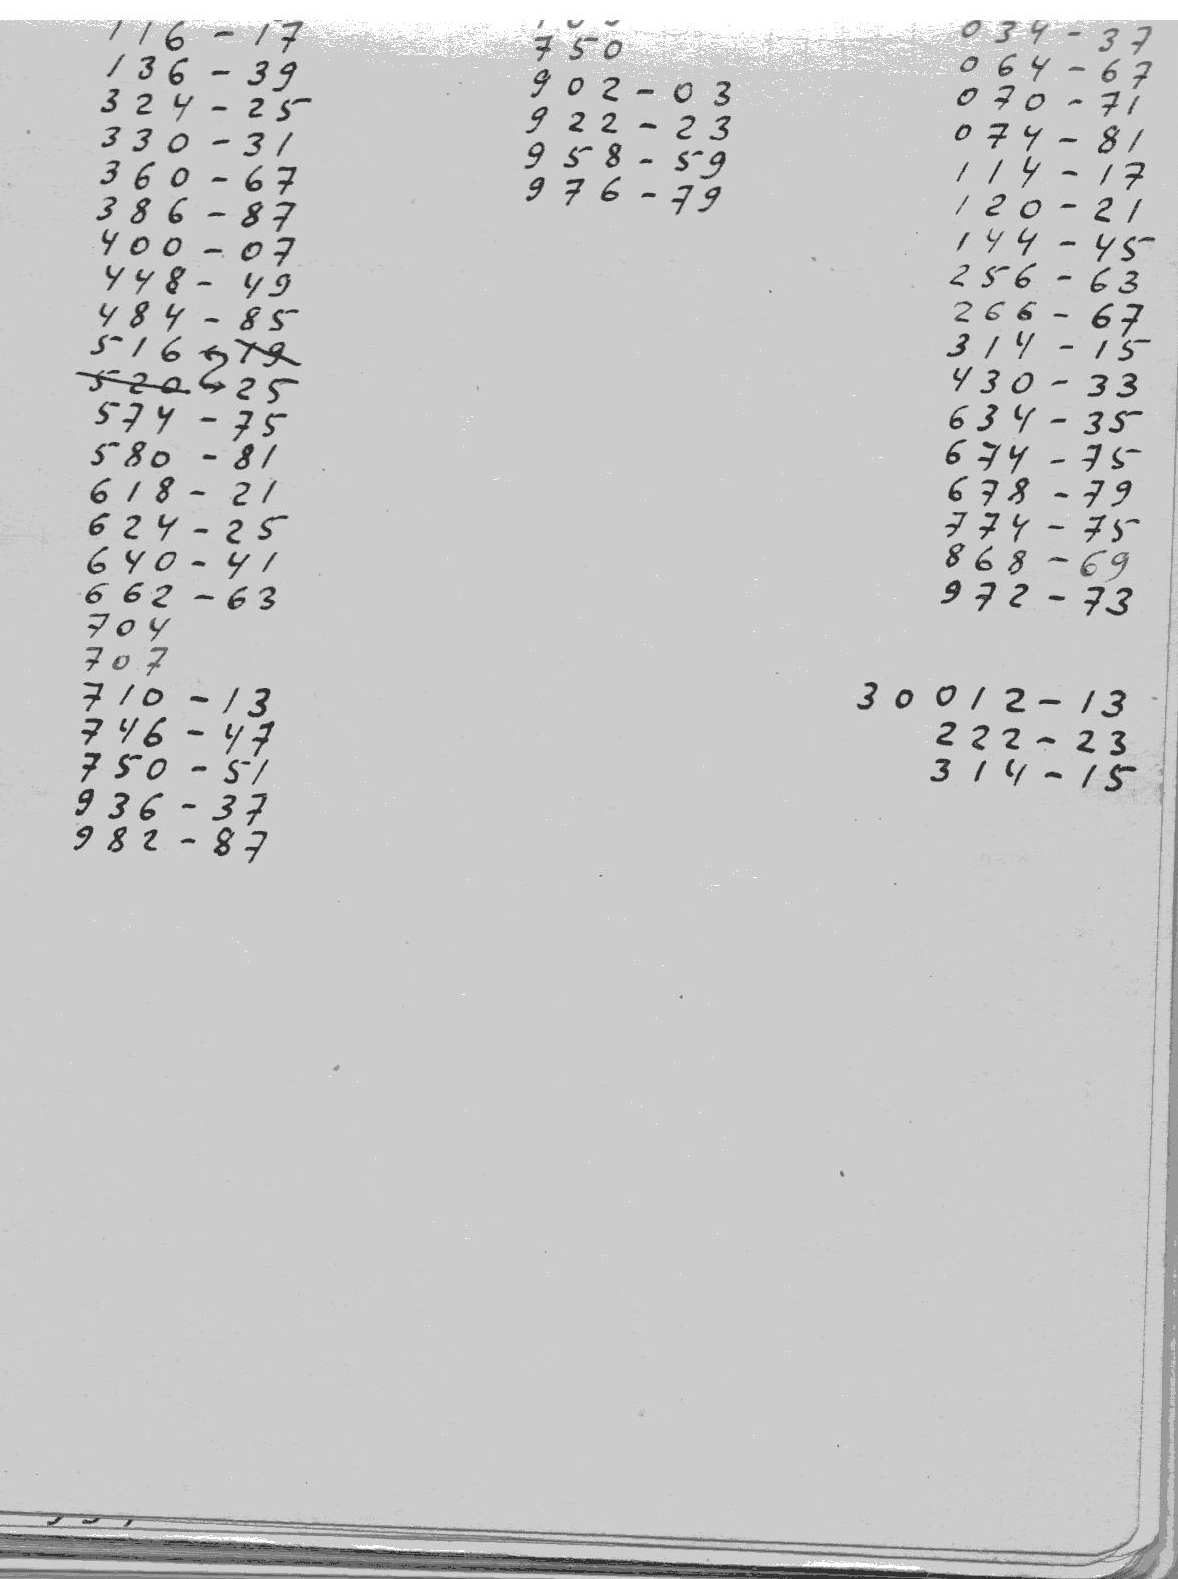 116-17
136-39
324-25
330-31
360-67
386-87
400-07
448-49
484-85
516 19
520 25
574-75
580-81
618-21
624-25
640-41
662-63
704
707
710-13
746-47
750-51
936-37
982-87
750
902-03
922-23
958-59
976-79
034-37
064-67
070-71
074-81
114-17
120-21
144-45
256-63
266-67
314-15
430-33
634-35
674-75
678-79
774-75
868-69
972-73
30012-13
222-23
314-15